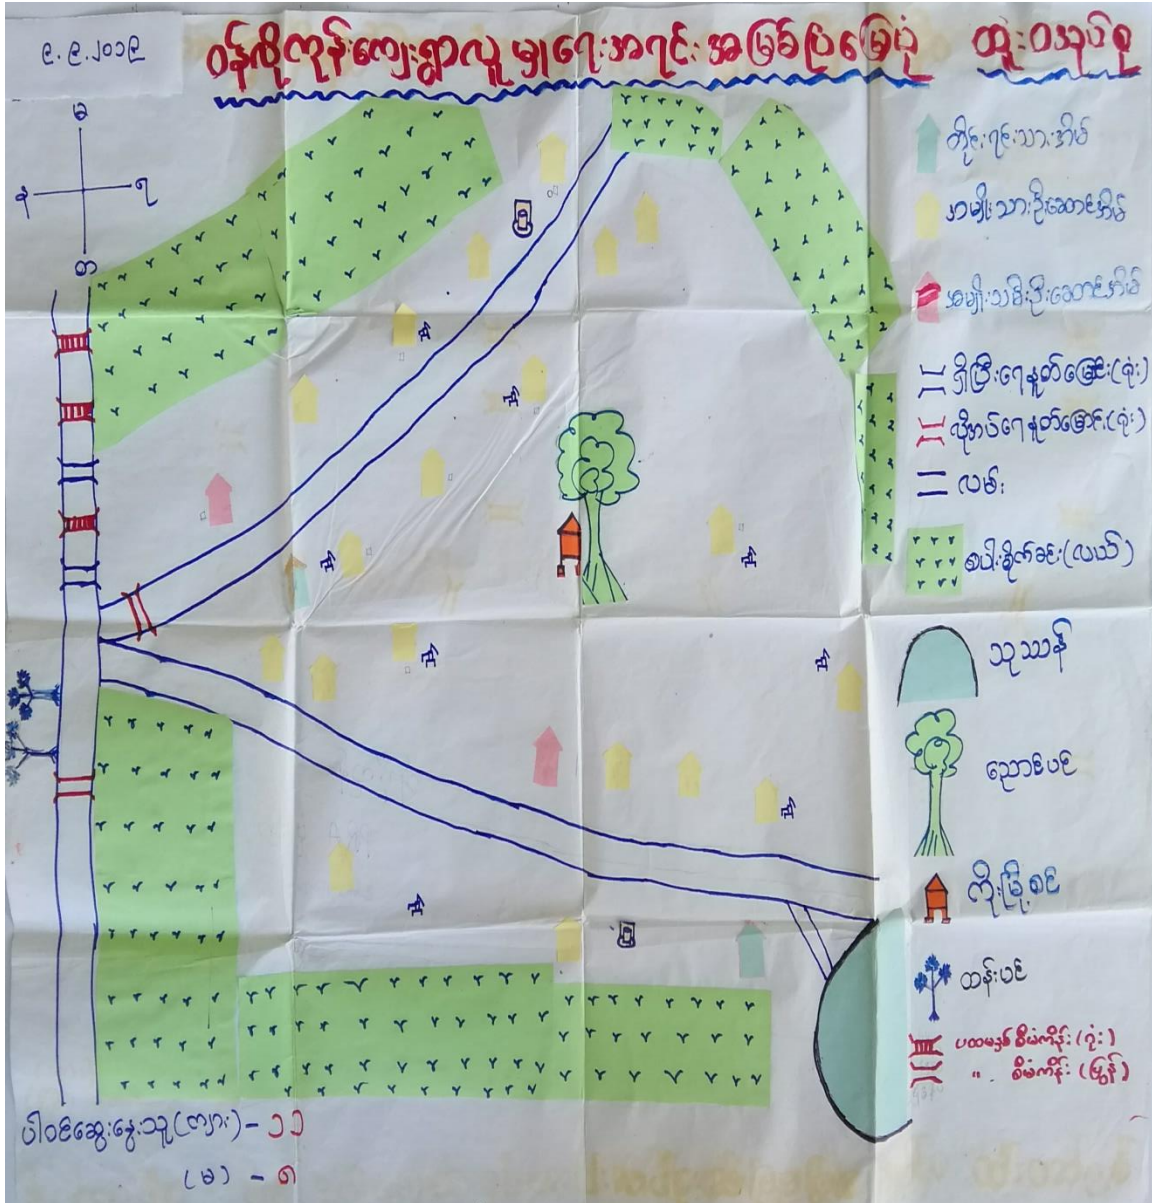 ၉.၉.၂၀၁၉
ဝန်လိုကုန်ကျေးရွာလူမှုရေးအရင်းအမြစ်ပြမြေပုံ
ထူးဝသုပ်စု
မ
န
ရ
တိုင်းရင်းသားအိမ်
အမျိုးသားဦးဆောင်အိမ်
အမျိုးသမီးဦးဆောင်အိမ်
ရှိပြီးရေနူတ်မြောင်း(ဂုံး)
လိုအပ်ရေနူတ်မြောင်း(ဂုံး)
လမ်း
စပါးစိုက်ခင်း(လယ်)
သုဿန်
ညောင်ပင်
ကိုးမြို့စင်
ထန်းပင်
ပထမနှစ်စီမံကိန်း(ဂုံး)
" စီမံကိန်း(မြွန်)
ပါဝင်ဆွေးနွေးသူ(ကျား)-၁၁
(မ) - ၈